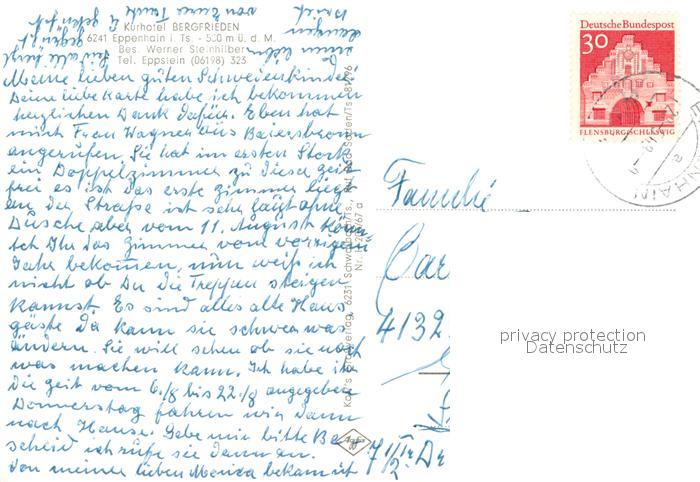 Kurhotel BERGFRIEDEN
6241 Eppenhain i. Ts. - 500 m ü. d. M.
Bes. Werner Steinhilber
Tel. Eppstein (06198) 323
Meine lieben guten Schweizerkinder
Deine liebe Karte habe ich bekommen
herzlichen Dank dafür. Eben hat
mich Frau Wagner aus Baiersbronn
angerufen. Sie hat im ersten Stock
ein Doppelzimmer zu dieser Zeit
frei es ist das erste Zimmer liegt
an der Straße ist sehr laut ohne
Dusche aber vom 11. August könn
Ich Ihr das Zimmer vom vorrigem
Jahr bekommen, nun weiß ich
nicht ob Du die Treppen steigen
kannst. Es sind alles alte Haus
gäste da kann sie schwer was
ändern. Sie will sehen ob sie noch
was machen kann. Ich habe ihr
die Zeit vom 6./8 bis 22./8 angegeben
Donnerstag fahren wir dann
nach Hause. Gebe mir bitte Be
scheid ich rufe sie dann an.
Von meiner lieben Monica bekam ich
einen lieben
langen
Brief
seid alle herzl
gegrüßt
von Eurer
Deutsche Bundespost
30
FLENSBURG/SCHLESWIG
NHAIN
a
Familie
Car
4132
privacy protection
Datenschutz